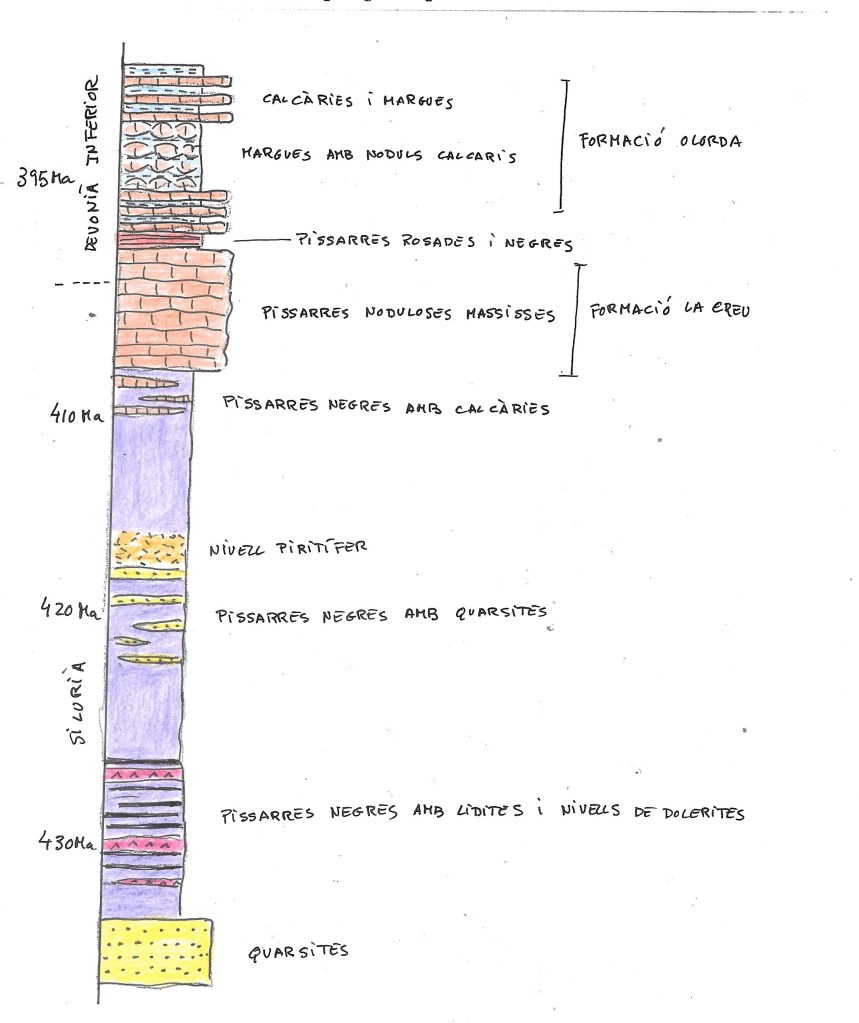 CALCÀRIES i MARGUES
MARGUES AMB NODULS CALCARIS
FORMACIÓ OLORDA
DEVONIÀ INFERIOR
395 Ma
PISSARRES ROSADES i NEGRES
PISSARRES NODULOSES MASSISSES
FORMACIÓ LA CREU
PISSARRES NEGRES AMB CALCÀRIES
410 Ma
NIVELL PIRITÍFER
420 Ma
PISSARRES NEGRES AMB QUARSITES
SILURIÀ
PISSARRES NEGRES AMB LIDITES i NIVELLS DE DOLERITES
430 Ma
QUARSITES